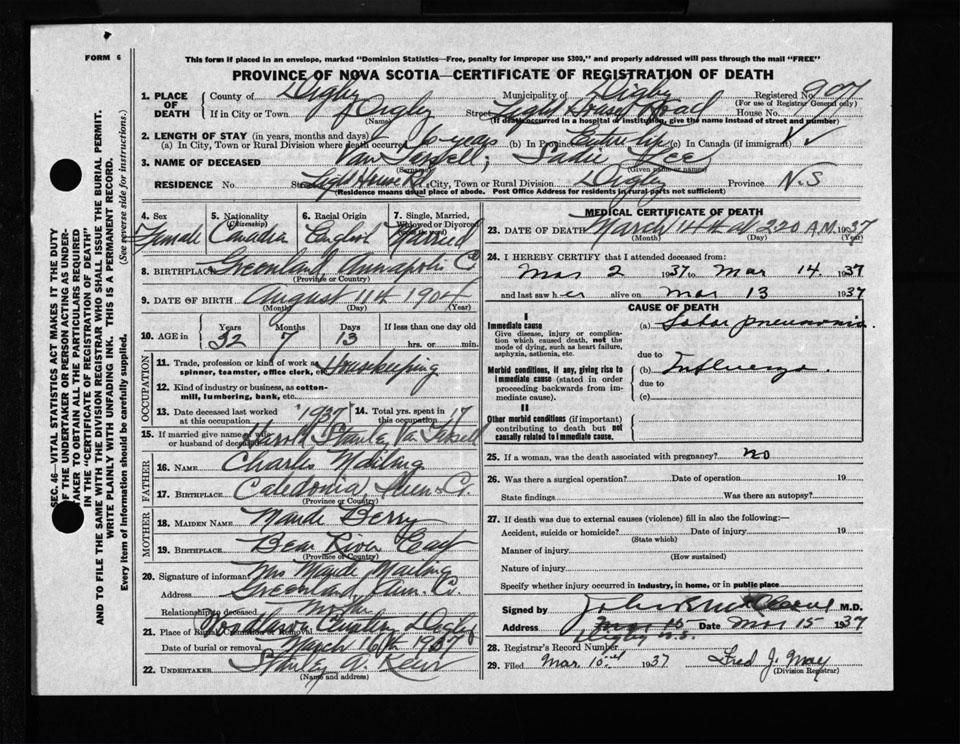 FORM 6
This form if placed in an envelope, marked "Dominion Statistics—Free, penalty for improper use $300," and properly addressed will pass through the mail "FREE"
PROVINCE OF NOVA SCOTIA—CERTIFICATE OF REGISTRATION OF DEATH
SEC. 46—VITAL STATISTICS ACT MAKES IT THE DUTY
OF THE UNDERTAKER OR PERSON ACTING AS UNDER-
TAKER TO OBTAIN ALL THE PARTICULARS REQUIRED
IN THE "CERTIFICATE OF REGISTRATION OF DEATH"
AND TO FILE THE SAME WITH THE DIVISION REGISTRAR WHO SHALL ISSUE THE BURIAL PERMIT.
WRITE PLAINLY WITH UNFADING INK. THIS IS A PERMANENT RECORD.
Every item of information should be carefully supplied. (See reverse side for instructions.)
1. PLACE OF DEATH County of Digby Municipality of Digby Registered No. 907
(For use of Registrar General only)
If in City or Town Digby Street Light House Road House No.
(Name) (If death occurred in a hospital or institution, give the name instead of street and number)
2. LENGTH OF STAY (in years, months and days)
(a) In City, Town or Rural Division where death occurred 6 years (b) In Province Entire life (c) In Canada (if immigrant) ✓
3. NAME OF DECEASED Van Tassell, Sadie Lee
(Surname) (Given name or names)
RESIDENCE No. Street Light House Rd. City, Town or Rural Division Digby Province N.S
(Residence means usual place of abode. Post Office Address for residents in rural parts not sufficient)
4. Sex Female
5. Nationality (Citizenship) Canadian
6. Racial Origin English
7. Single, Married, Widowed or Divorced Married
8. BIRTHPLACE Greenland, Annapolis C
(Province or Country)
9. DATE OF BIRTH August 11th 1904
(Month) (Day) (Year)
10. AGE in Years 32 Months 7 Days 13 If less than one day old hrs. or min.
OCCUPATION
11. Trade, profession or kind of work as spinner, teamster, office clerk, etc. Housekeeping
12. Kind of industry or business, as cotton-mill, lumbering, bank, etc.
13. Date deceased last worked at this occupation 1937 14. Total yrs. spent in this occupation 17
15. If married give name of wife or husband of deceased Harold Stanley Van Tassell
FATHER
16. NAME Charles
17. BIRTHPLACE Caledonia, Queens Co.
(Province or Country)
MOTHER
18. MAIDEN NAME Maude Berry
19. BIRTHPLACE Bear River East
(Province or Country)
20. Signature of informant Mrs Maude
Address Greenland, Ann. Co.
Relationship to deceased Mother
21. Place of Burial, Cremation or Removal Digby
Date of burial or removal March 16th 1937
22. UNDERTAKER Stanley A.
(Name and address)
MEDICAL CERTIFICATE OF DEATH
23. DATE OF DEATH March 14th at 2.20 A.M. 1937
(Month) (Day) (Year)
24. I HEREBY CERTIFY that I attended deceased from:
Mar 2 1937 to Mar 14 1937
and last saw her alive on Mar 13 1937
CAUSE OF DEATH
I
Immediate cause (a) Lobar pneumonia
Give disease, injury or complication which caused death, not the mode of dying, such as heart failure, asphyxia, asthenia, etc.
due to
Morbid conditions, if any, giving rise to immediate cause (stated in order proceeding backwards from immediate cause). (b) Influenza
due to
(c)
II
Other morbid conditions (if important) contributing to death but not causally related to immediate cause.
25. If a woman, was the death associated with pregnancy? no
26. Was there a surgical operation? Date of operation 19
State findings Was there an autopsy?
27. If death was due to external causes (violence) fill in also the following:—
Accident, suicide or homicide? Date of injury 19
(State which)
Manner of injury
(How sustained)
Nature of injury
Specify whether injury occurred in industry, in home, or in public place
Signed by M.D.
Address Mar 15 Date Mar 15 1937
Digby N.S.
28. Registrar's Record Number
29. Filed Mar. 1937 Fred J. May
(Division Registrar)